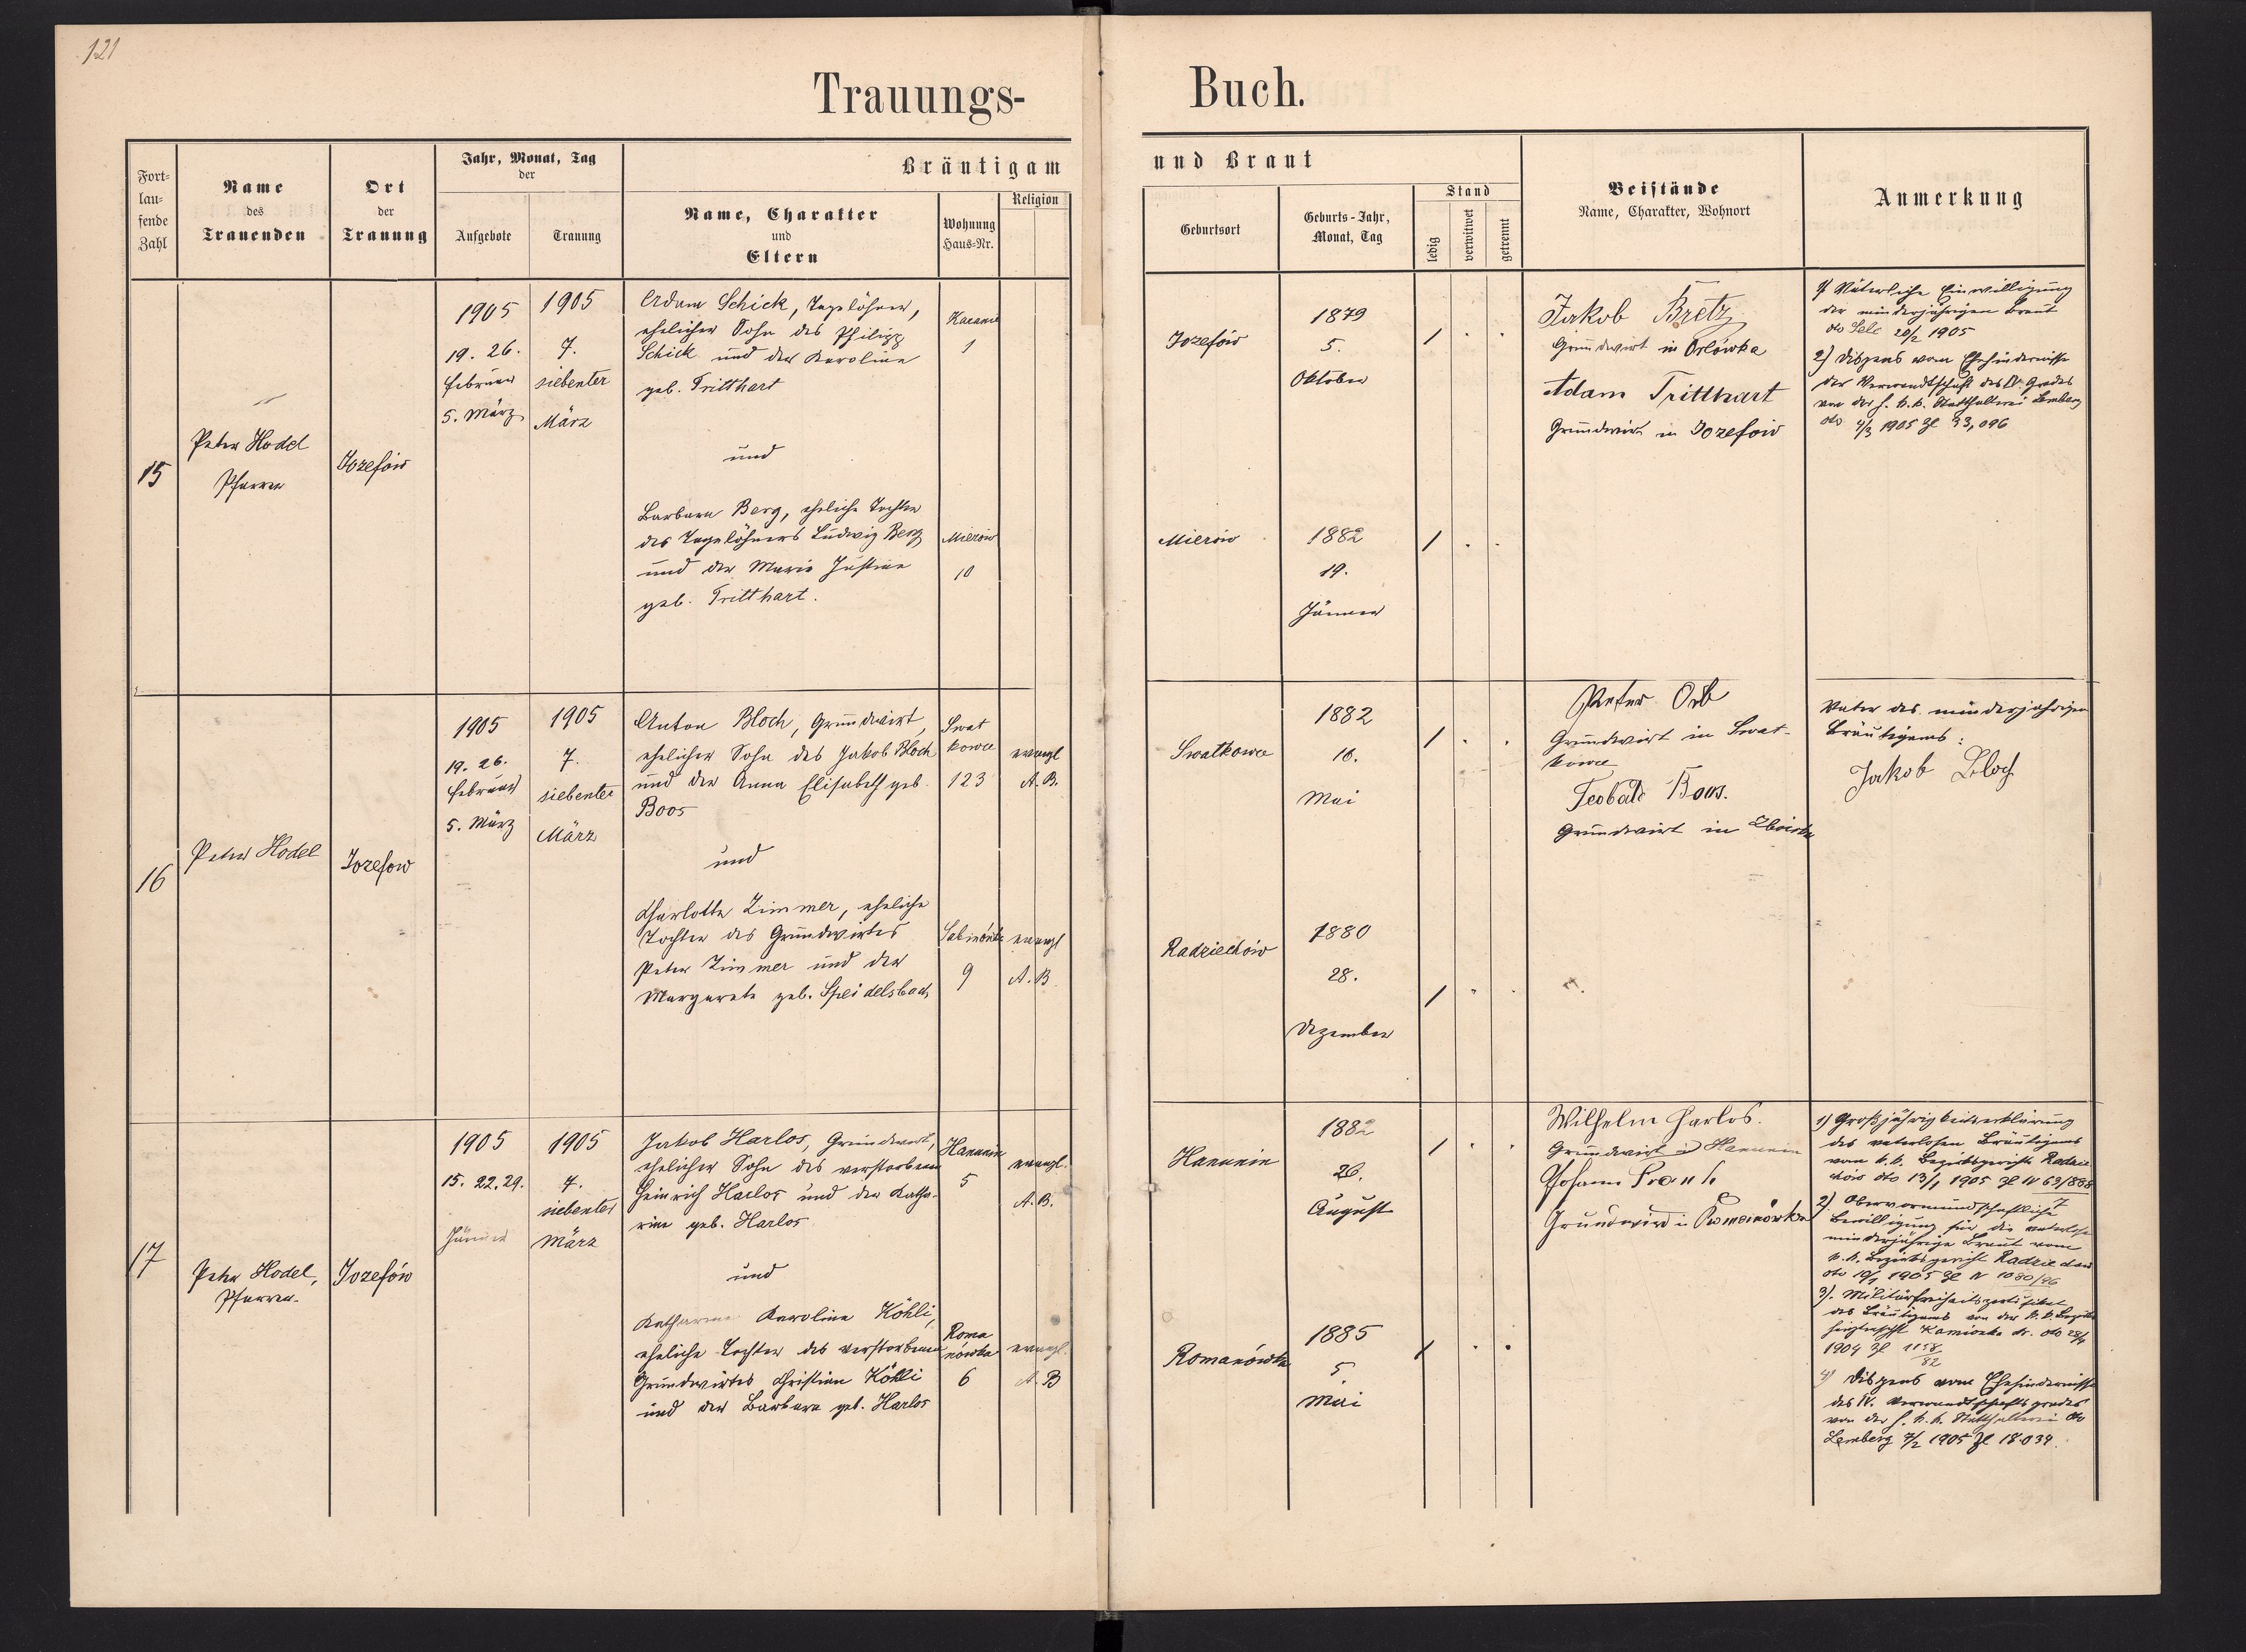 121
Trauungs-
Buch.
Fort-
lau-
fende
Zahl
Name
des
Trauenden
Ort
der
Trauung
Jahr, Monat, Tag
der
Aufgebote
Trauung
Bräutigam
Name, Charakter
und
Eltern
Wohnung
Haus-Nr.
Religion
und Braut
Geburtsort
Geburts-Jahr,
Monat, Tag
Stand
ledig
verwitwet
getrennt
Beistände
Name, Charakter, Wohnort
Anmerkung
15
Peter Hodel
Pfarrer
Jozefów
1905
19. 26.
Februar
5. März
1905
7.
siebenter
März
Adam Schick, Tagelöhner,
ehelicher Sohn des Philipp
Schick und der Karoline
geb. Tritthart
1
und
Barbara Berg, eheliche Tochter
des Tagelöhners Ludwig Berg
und der Maria Justine
geb. Tritthart.
Mierów
10
Jozefów
1879
5.
Oktober
/ . .
Mierów
1882
19.
Jänner
/ . .
Jakob Bretz
Grundwirt in Orłówka
Adam Tritthart
Grundwirt in Jozefów
1) Väterliche Einwilligung
der minderjährigen Braut
dto 20/2 1905
2) Dispens vom Ehehindernisse
der Verwandtschaft des IV. Grades
von der h. k. k. Statthalterei Lemberg
dto 4/3 1905 Zl 33,096
16
Peter Hodel
Jozefow
1905
19. 26.
Februar
5. März
1905
7.
siebenter
März
Anton Bloch, Grundwirt,
ehelicher Sohn des Jakob Bloch
und der Anna Elisabeth geb.
Boos
Swat
kowce
123
evangl
A. B.
und
Charlotte Zimmer, eheliche
Tochter des Grundwirtes
Peter Zimmer und der
Margareta geb. Speidelsbach
9
evangl
A. B
Swatkowce
1882
16.
Mai
/ . .
Radziechów
1880
28.
Dezember
/ . .
Peter Orb
Grundwirt in Swat-
kowce
Teobald Boos.
Grundwirt in
Vater des minderjährigen
Bräutigams:
Jakob Bloch
17
Peter Hodel,
Pfarrer.
Jozefów
1905
15. 22. 29.
Jänner
1905
7.
siebenter
März
Jakob Harlos, Grundwirt,
ehelicher Sohn des verstorbenen
Heinrich Harlos und der Katha-
rina geb. Harlos
Hanunin
5
evangl.
A. B.
und
Katharina Karolina Köhli,
eheliche Tochter des verstorbenen
Grundwirtes Christian Köhli
und der Barbara geb. Harlos
Roma
nówka
6
evangl.
A. B
Hanunin
1882
26.
August
/ . .
Romanówka
1885
5.
Mai
/ . .
Wilhelm Harlos.
Grundwirt in Hanunin
Johann Frank
Grundwird in Romanówka
1) Großjährigkeitserklärung
des vaterlosen Bräutigams
vom k.k. Bezirksgerichte Radzie
chów dto 13/1 1905 Zl IV 63/888
7
2) Obervormundschaftliche
Bewilligung für die vaterlose
minderjährige Braut vom
k.k. Bezirksgericht Radziechow
dto 1905 Zl IV 1080/96
3). Militärfreiheitszertifikat
des Bräutigams von der k.k. Bezirks
Kamionka str. dto
1904 Zl 1158
82
4) Dispens vom Ehehindernisse
des IV. Verwandtschaftsgrades
von der h. k. k. Statthalterei dto
Lemberg 7/2 1905 Zl 18.039.